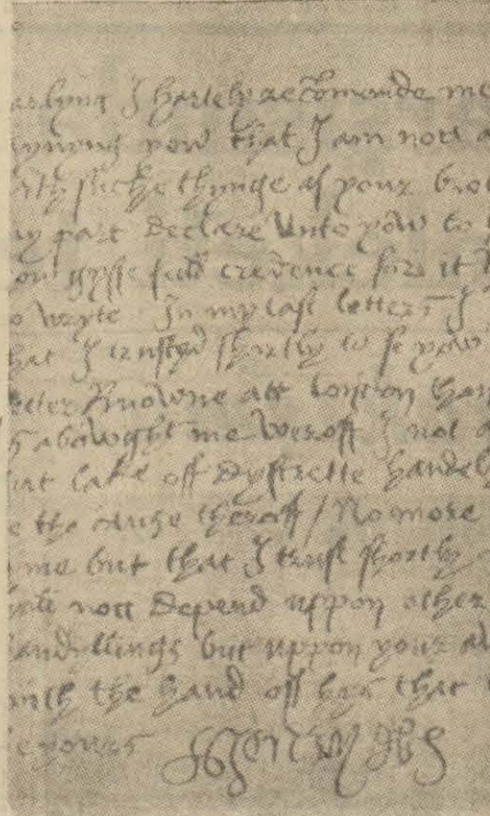 arlyng I hartely recomende me
ynyng yow that I am nott a
ith suche thynge as your brot
y part declare unto yow to
om gyffe full credence for it
o wryte In my last letters I
hat I trustyd shortly to se yow
etter knowne att london than
s abowght me weroff I not a
ut lake off dyscrette handely
e the cause theroff / No more
me but that I trust shortly
all nott depend uppon other
andyllings but uppon your
with the hand off hys that
e yours